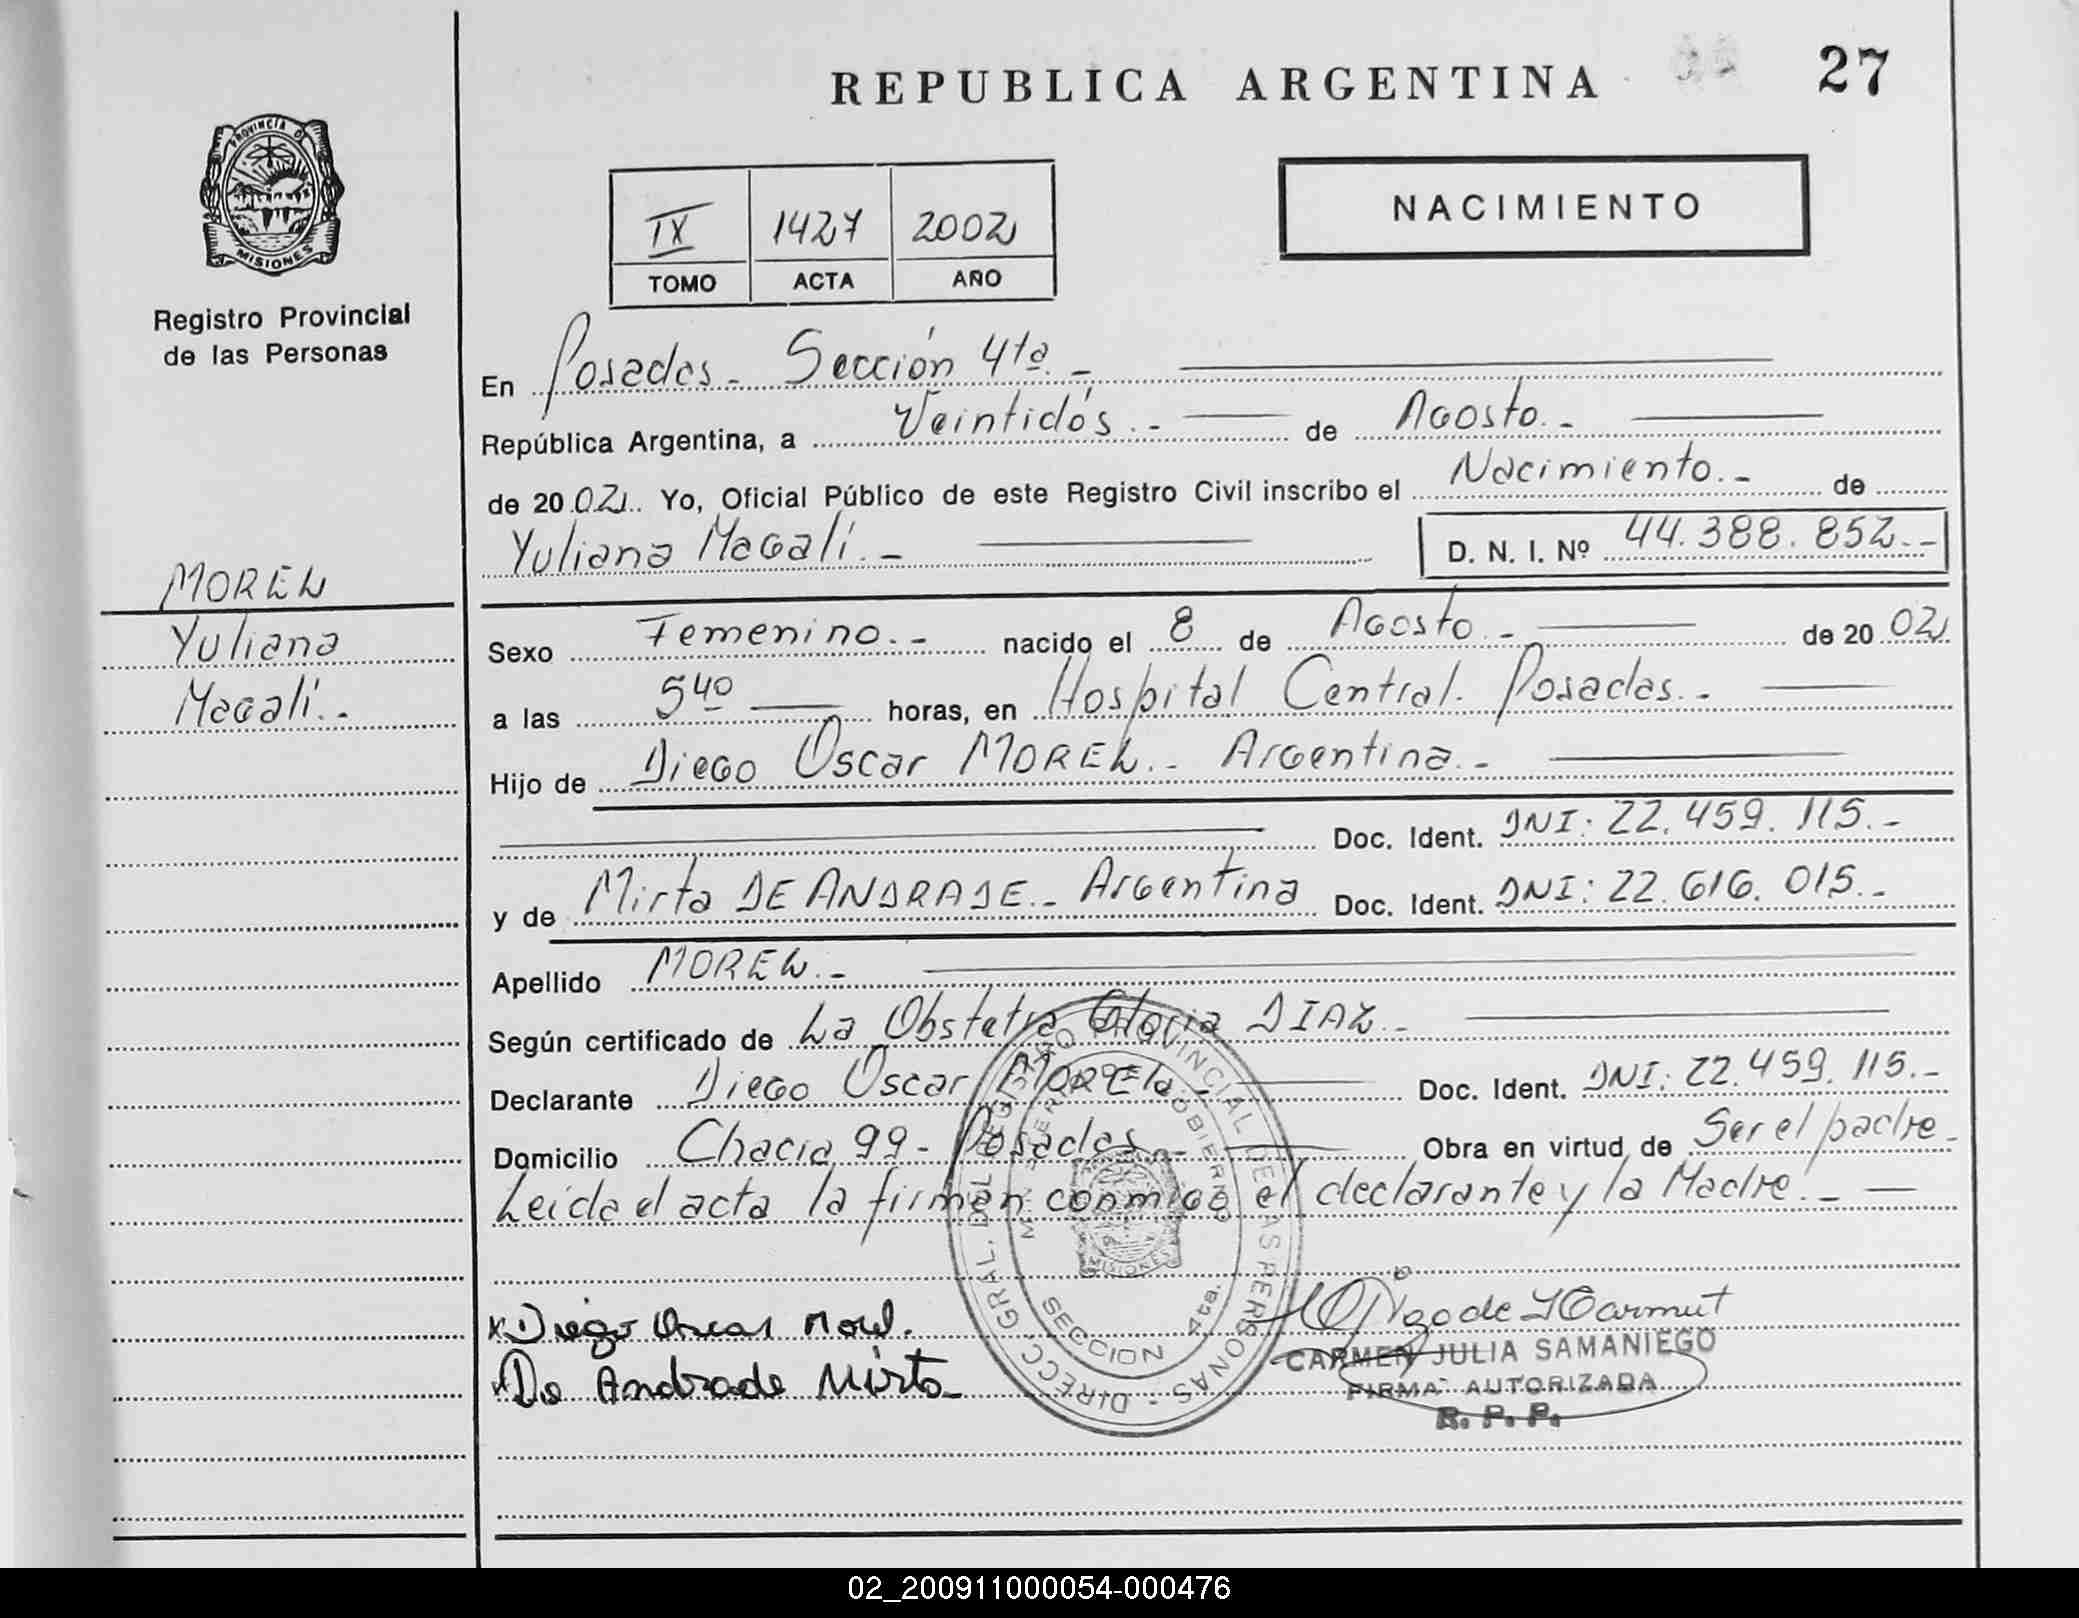 REPUBLICA ARGENTINA
27
PROVINCIA DE
MISIONES
Registro Provincial
de las Personas
IX 1427 2002
TOMO ACTA AÑO
NACIMIENTO
En Posadas - Sección 4ta. -
República Argentina, a Veintidós. - de Agosto. -
de 20 02. Yo, Oficial Público de este Registro Civil inscribo el Nacimiento. - de
Yuliana Magalí. - D. N. I. Nº 44.388.852. -
MOREL
Yuliana
Magalí. -
Sexo Femenino. - nacido el 8 de Agosto. - de 20 02
a las 5 40 horas, en Hospital Central. Posadas. -
Hijo de Diego Oscar MOREL. - Argentina. -
Doc. Ident. DNI: 22.459.115. -
y de Mirta DE ANDRADE. - Argentina Doc. Ident. DNI: 22.616.015. -
Apellido MOREL. -
Según certificado de La Obstetra Gloria DIAZ. -
Declarante Diego Oscar MOREL. - Doc. Ident. DNI: 22.459.115. -
Domicilio 99 - Posadas. - Obra en virtud de Ser el padre -
Leída el acta la firman conmigo el declarante y la Madre. -
x Diego Oscar Morel.
x De Andrade Mirta
DIRECC. GRAL. DEL REGISTRO PROVINCIAL DE LAS PERSONAS -
GOBIERNO
MISIONES
SECCION 4ta.
CARMEN JULIA SAMANIEGO
FIRMA AUTORIZADA
R. P. P.
02_200911000054-000476